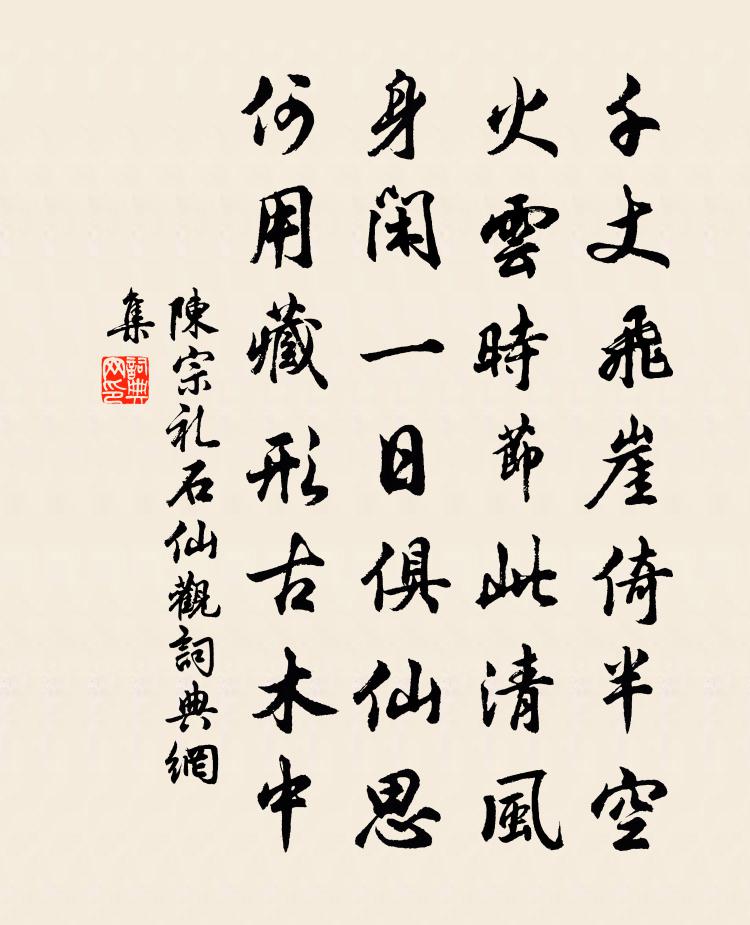 千丈飛崖倚半空
火雲時節此清風
身閑一日俱仙思
何用藏形古木中
陳宗礼石仙觀詞典網
集
詞典
网印